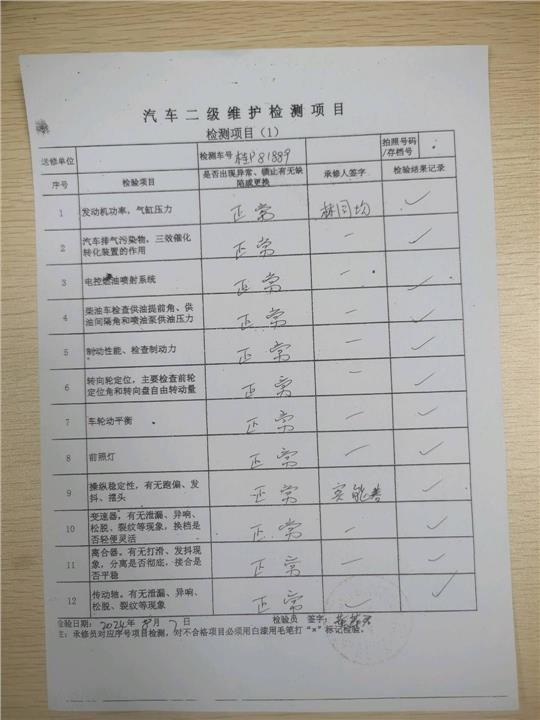 汽车二级维护检测项目
检测项目（1）
送修单位 检测车号 桂P81889 拍照号码/存档号
序号 检验项目 是否出现异常、锁止有无缺陷或更换 承修人签字 检验结果记录
1 发动机功率，气缸压力 正常 ✓
2 汽车排气污染物，三效催化转化装置的作用 正常 — ✓
3 电控燃油喷射系统 正常 — ✓
4 柴油车检查供油提前角、供油间隔角和喷油泵供油压力 正常 — ✓
5 制动性能、检查制动力 正常 — ✓
6 转向轮定位，主要检查前轮定位角和转向盘自由转动量 正常 — ✓
7 车轮动平衡 正常 — ✓
8 前照灯 正常 — ✓
9 操纵稳定性，有无跑偏、发抖、摆头 正常 ✓
10 变速器，有无泄漏、异响、松脱、裂纹等现象，换档是否轻便灵活 正常 — ✓
11 离合器。有无打滑、发抖现象，分离是否彻底，接合是否平稳 正常 — ✓
12 传动轴。有无泄漏、异响、松脱、裂纹等现象 正常 ✓ ✓
检验日期：2024年8月7日 检验员 签字：
注：承修员对应序号项目检测，对不合格项目必须用白漆用毛笔打“×”标记检验。